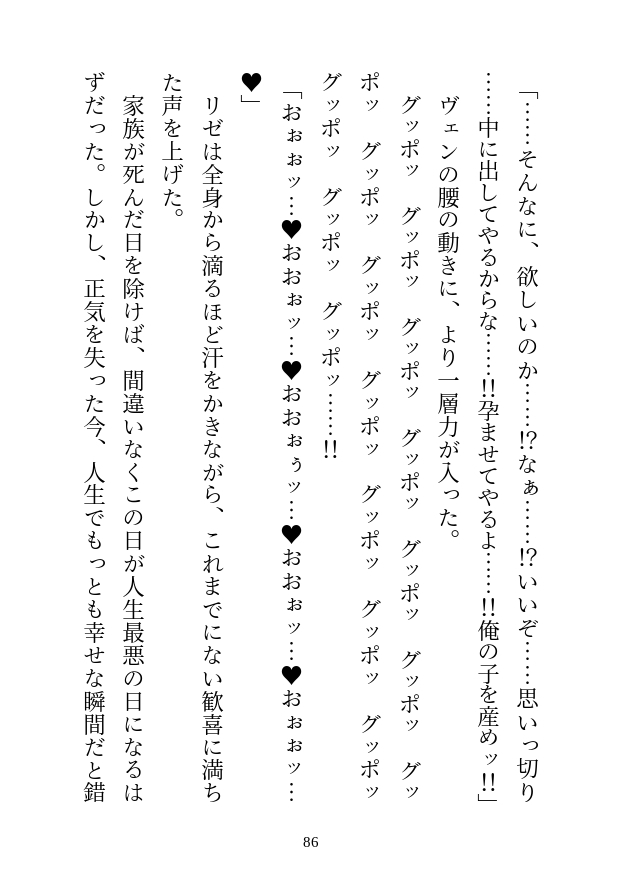 「……そんなに、欲しいのか……⁉なぁ……⁉いいぞ……思いっ切り
……中に出してやるからな……‼孕ませてやるよ……‼俺の子を産めッ‼」
　ヴェンの腰の動きに、より一層力が入った。
　グッポッ　グッポッ　グッポッ　グッポッ　グッポッ　グッポッ　グッ
ポッ　グッポッ　グッポッ　グッポッ　グッポッ　グッポッ　グッポッ
グッポッ　グッポッ　グッポッ……‼
「おぉぉッ…♥おおぉッ…♥おおぉぅッ…♥おおぉッ…♥おぉぉッ…
♥」
　リゼは全身から滴るほど汗をかきながら、これまでにない歓喜に満ち
た声を上げた。
　家族が死んだ日を除けば、間違いなくこの日が人生最悪の日になるは
ずだった。しかし、正気を失った今、人生でもっとも幸せな瞬間だと錯
86